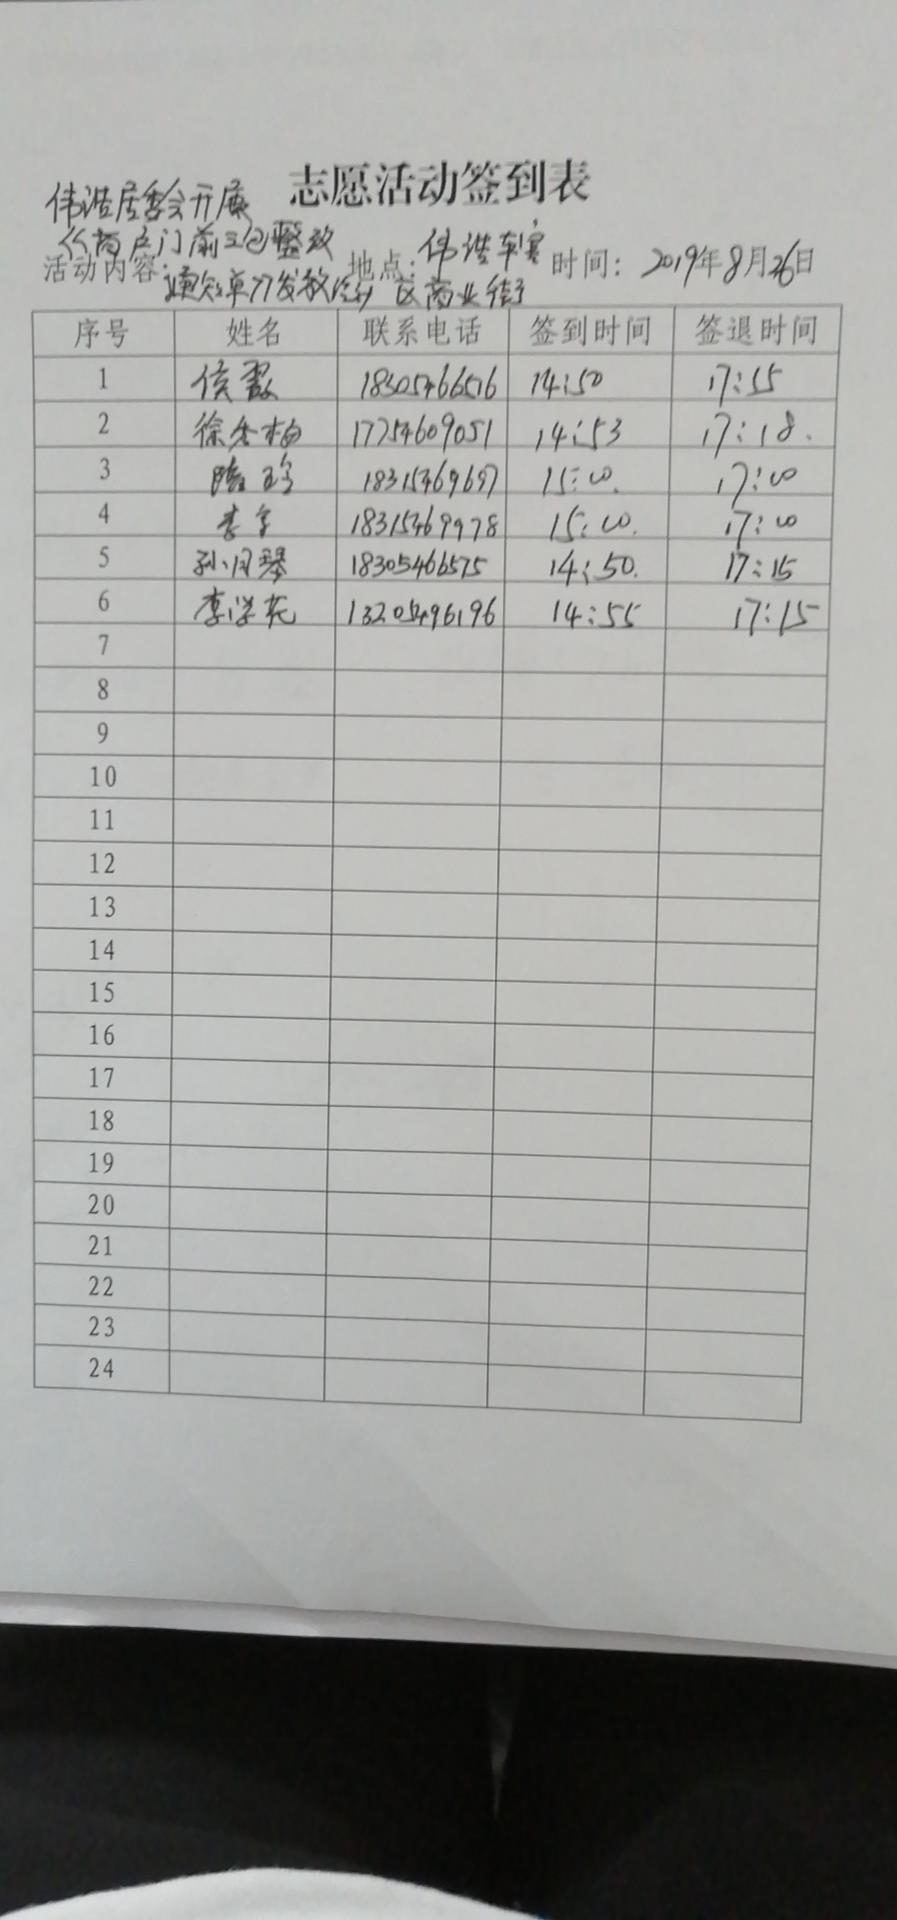 志愿活动签到表
伟浩居委会开展
《商户门前三包整改
活动内容: 地点: 伟浩 时间: 2019年8月26日
通知单》发放活动 区商业街
序号 姓名 联系电话 签到时间 签退时间
1 侯翠 18305466516 14:50 17:15
2 徐 17754609051 14:53 17:18.
3 18315469697 15:00. 17:00
4 李宁 18315469978 15:00. 17:00
5 孙月琴 18305466575 14:50. 17:15
6 李洪花 13205496196 14:55 17:15
7
8
9
10
11
12
13
14
15
16
17
18
19
20
21
22
23
24